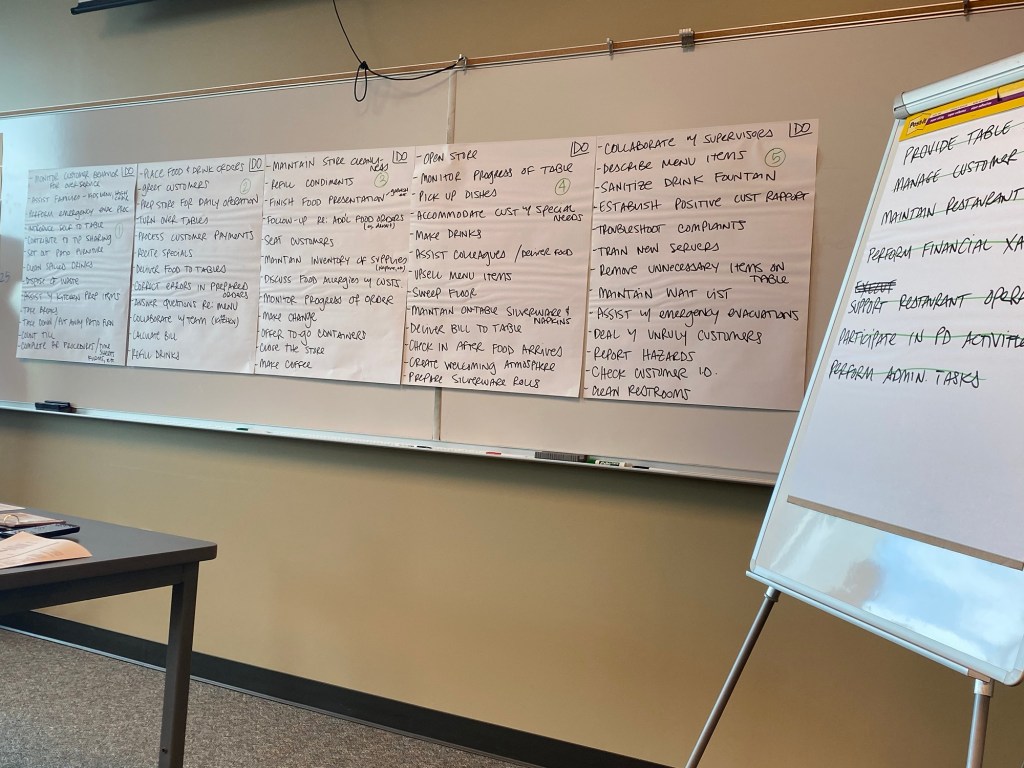 - MONITOR CUSTOMER BEHAVIOR I DO
FOR OVERSERVICE
PERFORM EMERGENCY
ESCORT HELP TO TABLE
CONTRIBUTE TO TIP SHARING 1
SET OUT PATIO FURNITURE
- CLEAN SPILLED DRINKS
- DISPOSE OF WASTE
- ASSIST W KITCHEN PREP ITEMS
- TAKE BREAKS
- TAKE DOWN / PUT AWAY PATIO FURN
- COUNT TILL
- PLACE FOOD & DRINK ORDERS I DO
- GREET CUSTOMERS 2
- PREP STORE FOR DAILY OPERATION
- TURN OVER TABLES
- PROCESS CUSTOMER PAYMENTS
- RECITE SPECIALS
- DELIVER FOOD TO TABLES
- DETECT ERRORS IN PREPARED
ORDERS
- ANSWER QUESTIONS RE: MENU
- COLLABORATE W TEAM (KITCHEN)
- CALCULATE BILL
- REFILL DRINKS
- MAINTAIN STORE CLEANLI- I DO
NESS
- REFILL CONDIMENTS 3
- FINISH FOOD PRESENTATION
- FOLLOW-UP RE: ADD'L FOOD ORDERS
- SEAT CUSTOMERS
- MAINTAIN INVENTORY OF SUPPLIES
- DISCUSS FOOD ALLERGIES W CUSTS.
- MONITOR PROGRESS OF ORDER
- MAKE CHANGE
- OFFER TO-GO CONTAINERS
- CLOSE THE STORE
- MAKE COFFEE
- OPEN STORE I DO
- MONITOR PROGRESS OF TABLE
- PICK UP DISHES 4
- ACCOMMODATE CUST W SPECIAL
NEEDS
- MAKE DRINKS
- ASSIST COLLEAGUES / DELIVER FOOD
- UPSELL MENU ITEMS
- SWEEP FLOOR
- MAINTAIN ONTABLE SILVERWARE &
NAPKINS
- DELIVER BILL TO TABLE
- CHECK IN AFTER FOOD ARRIVES
- CREATE WELCOMING ATMOSPHERE
- PREPARE SILVERWARE ROLLS
- COLLABORATE W SUPERVISORS I DO
- DESCRIBE MENU ITEMS 5
- SANITIZE DRINK FOUNTAIN
- ESTABLISH POSITIVE CUST RAPPORT
- TROUBLESHOOT COMPLAINTS
- TRAIN NEW SERVERS
- REMOVE UNNECESSARY ITEMS ON
TABLE
- MAINTAIN WAIT LIST
- ASSIST W EMERGENCY EVACUATIONS
- DEAL W UNRULY CUSTOMERS
- REPORT HAZARDS
- CHECK CUSTOMER ID.
- CLEAN RESTROOMS
Post-it
PROVIDE TABLE
MANAGE CUSTOMER
MAINTAIN RESTAURANT
PERFORM FINANCIAL XA
SUPPORT RESTAURANT OPERA
PARTICIPATE IN PD ACTIVITIE
PERFORM ADMIN. TASKS